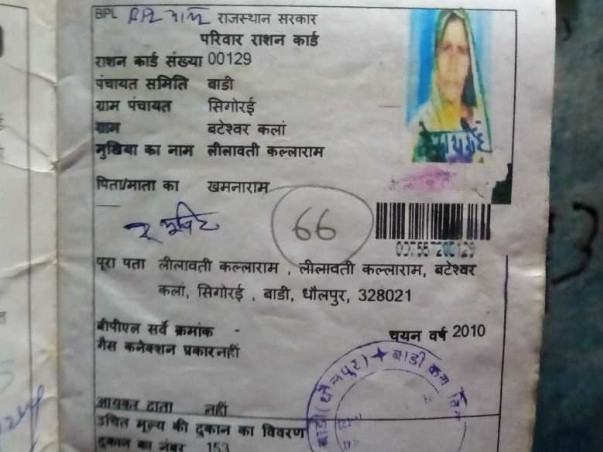 BPL राजस्थान सरकार
परिवार राशन कार्ड
राशन कार्ड संख्या 00129
पंचायत समिति बाडी
ग्राम पंचायत सिगोरई
ग्राम बटेश्वर कलां
मुखिया का नाम लीलावती कल्लाराम
पिता/माता का खमनाराम
66
पूरा पता लीलावती कल्लाराम , लीलावती कल्लाराम, बटेश्वर
कलां, सिगोरई , बाडी, धौलपुर, 328021
बीपीएल सर्वे क्रमांक - चयन वर्ष 2010
गैस कनेक्शन प्रकारनहीं
आयकर दाता नहीं
उचित मूल्य की दुकान का विवरण
दुकान का नंबर 153